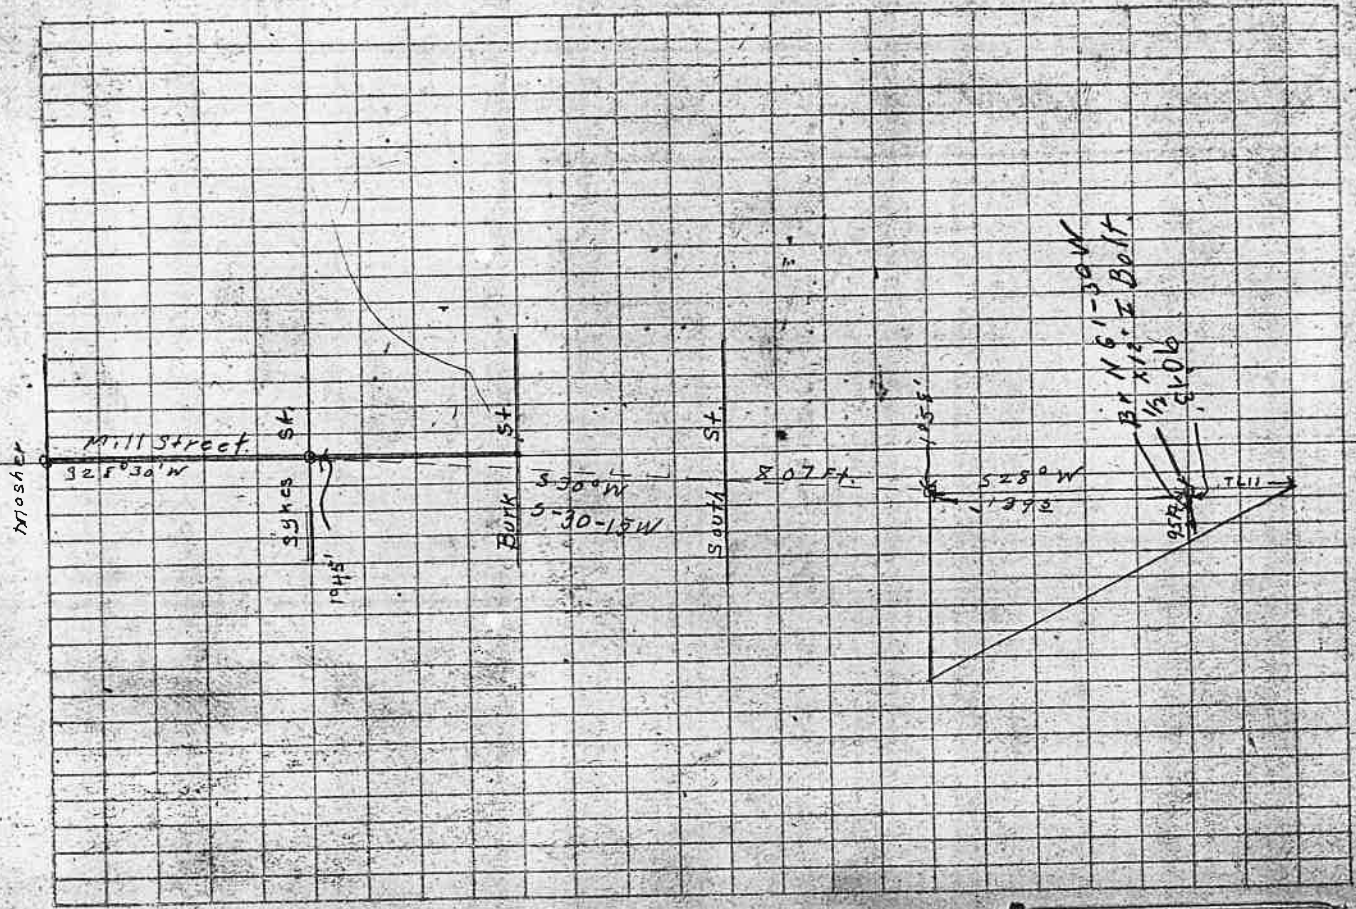 Mosher
Mill Street.
S28°30'W
Sykes St.
1°45'
Burk St.
S30°W
S-30-15W
South St.
807 Ft.
1°58'
S28°W
1393
Br N 61-30W
1/2 X12. I Bolt